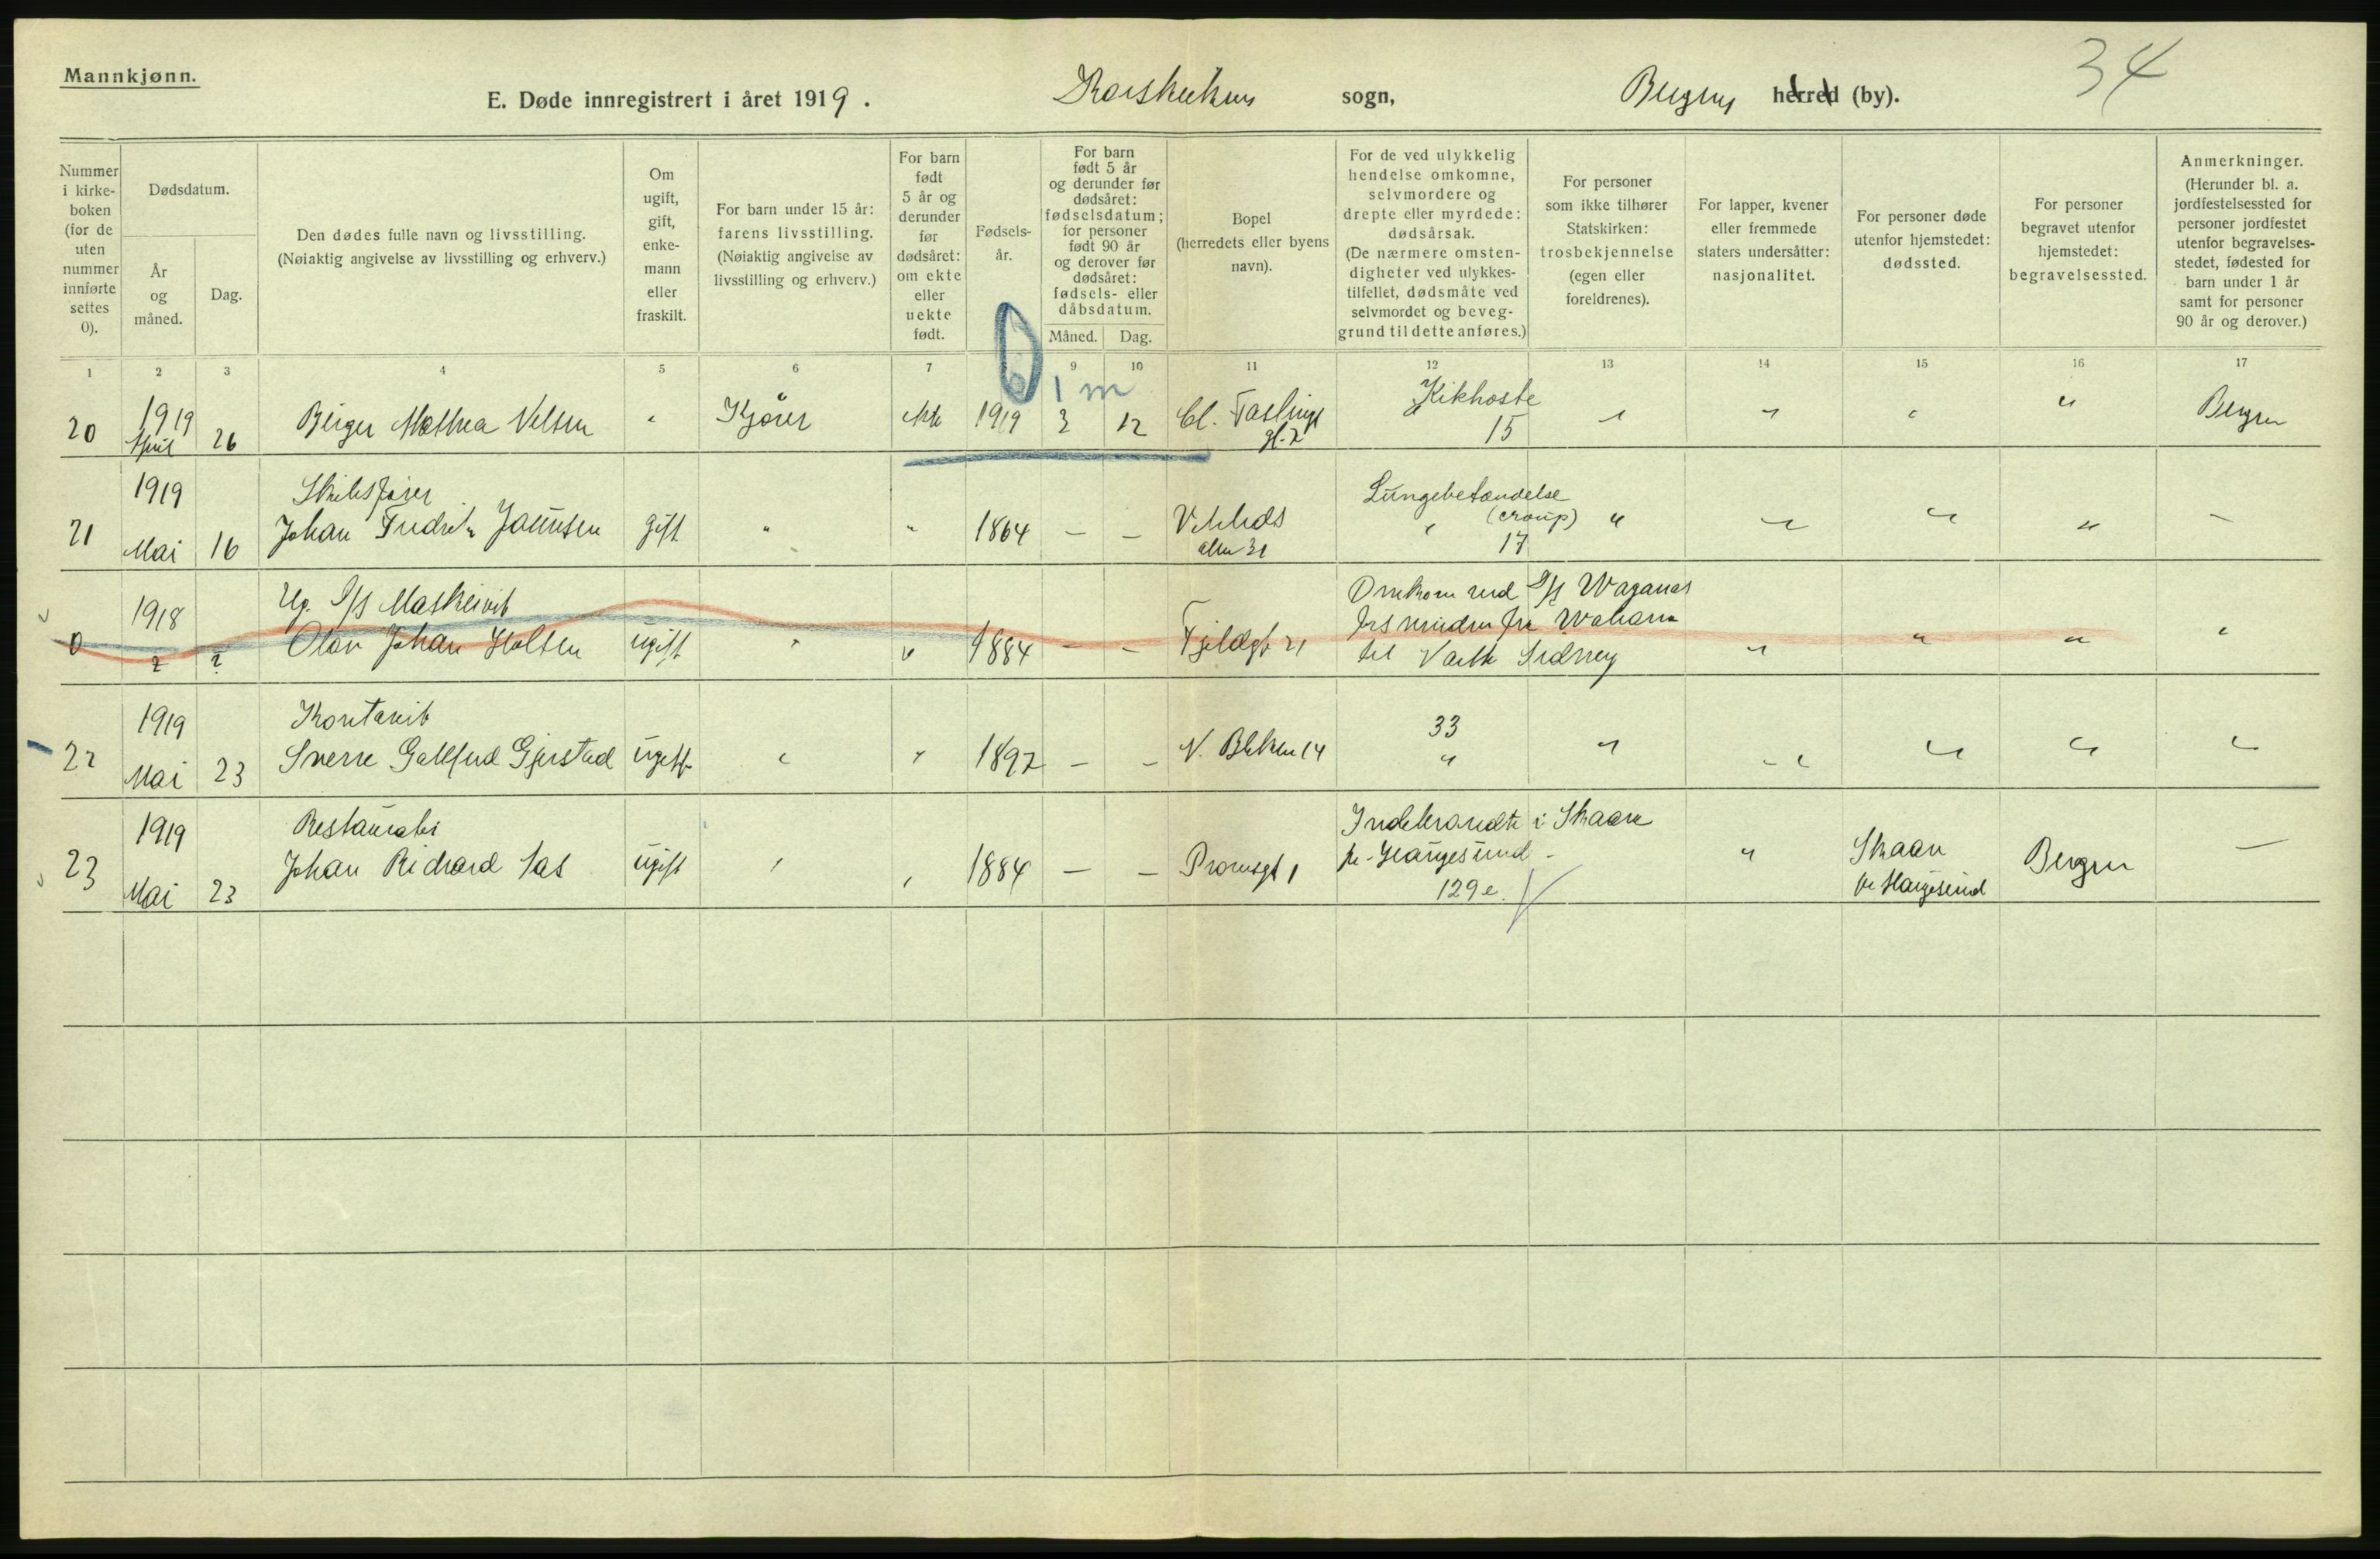 Mannkjønn.
E. Døde innregistrert i året 1919. Korskirkens sogn, Bergens herred (by). 34
Nummer i kirke- boken (for de uten nummer innførte settes 0).
Dødsdatum.
År og måned.
Dag.
Den dødes fulle navn og livsstilling.
(Nøiaktig angivelse av livsstilling og erhverv.)
Om ugift, gift, enke- mann eller fraskilt.
For barn under 15 år: farens livsstilling.
(Nøiaktig angivelse av livsstilling og erhverv.)
For barn født 5 år og derunder før dødsåret: om ekte eller uekte født.
Fødsels- år.
For barn født 5 år og derunder før dødsåret: fødselsdatum; for personer født 90 år og derover før dødsåret: fødsels- eller dåbsdatum.
Måned. Dag.
Bopel (herredets eller byens navn).
For de ved ulykkelig hendelse omkomne, selvmordere og drepte eller myrdede: dødsårsak.
(De nærmere omsten- digheter ved ulykkes- tilfellet, dødsmåte ved selvmordet og beveg- grund til dette anføres.)
For personer som ikke tilhører Statskirken: trosbekjennelse (egen eller foreldrenes).
For lapper, kvener eller fremmede staters undersåtter: nasjonalitet.
For personer døde utenfor hjemstedet: dødssted.
For personer begravet utenfor hjemstedet: begravelsessted.
Anmerkninger.
(Herunder bl. a. jordfestelsessted for personer jordfestet utenfor begravelses- stedet, fødested for barn under 1 år samt for personer 90 år og derover.)
1 2 3 4 5 6 7 9 10 11 12 13 14 15 16 17
1 m
1919 Kikhoste
20 April 26 Birger Mathea Nelsen " Kjører ekte 1919 3 12 Cl. " " " " Bergen
gt. 2 15
1919 Skibsfører Lungebetændelse
21 Mai 16 Johan Fredrik gift " " 1864 – – " (croup) " " " " –
alm 31 17
1918 Ug. S/S Omkom med S/S
0 ? ? Olav Johan Holsen ugift " " 1884 – – Fjeldgt 21 fra " " " "
til Sidney
1919 33
22 Mai 23 Sverre Gjerstad ugift " " 1897 – – N. 14 " " " " " "
1919 Restauratør Indebrændte i Skaare
23 Mai 23 Johan Richard Aas ugift " " 1884 – – 1 pr. Haugesund – " Skaare Bergen –
129e. pr Haugesund